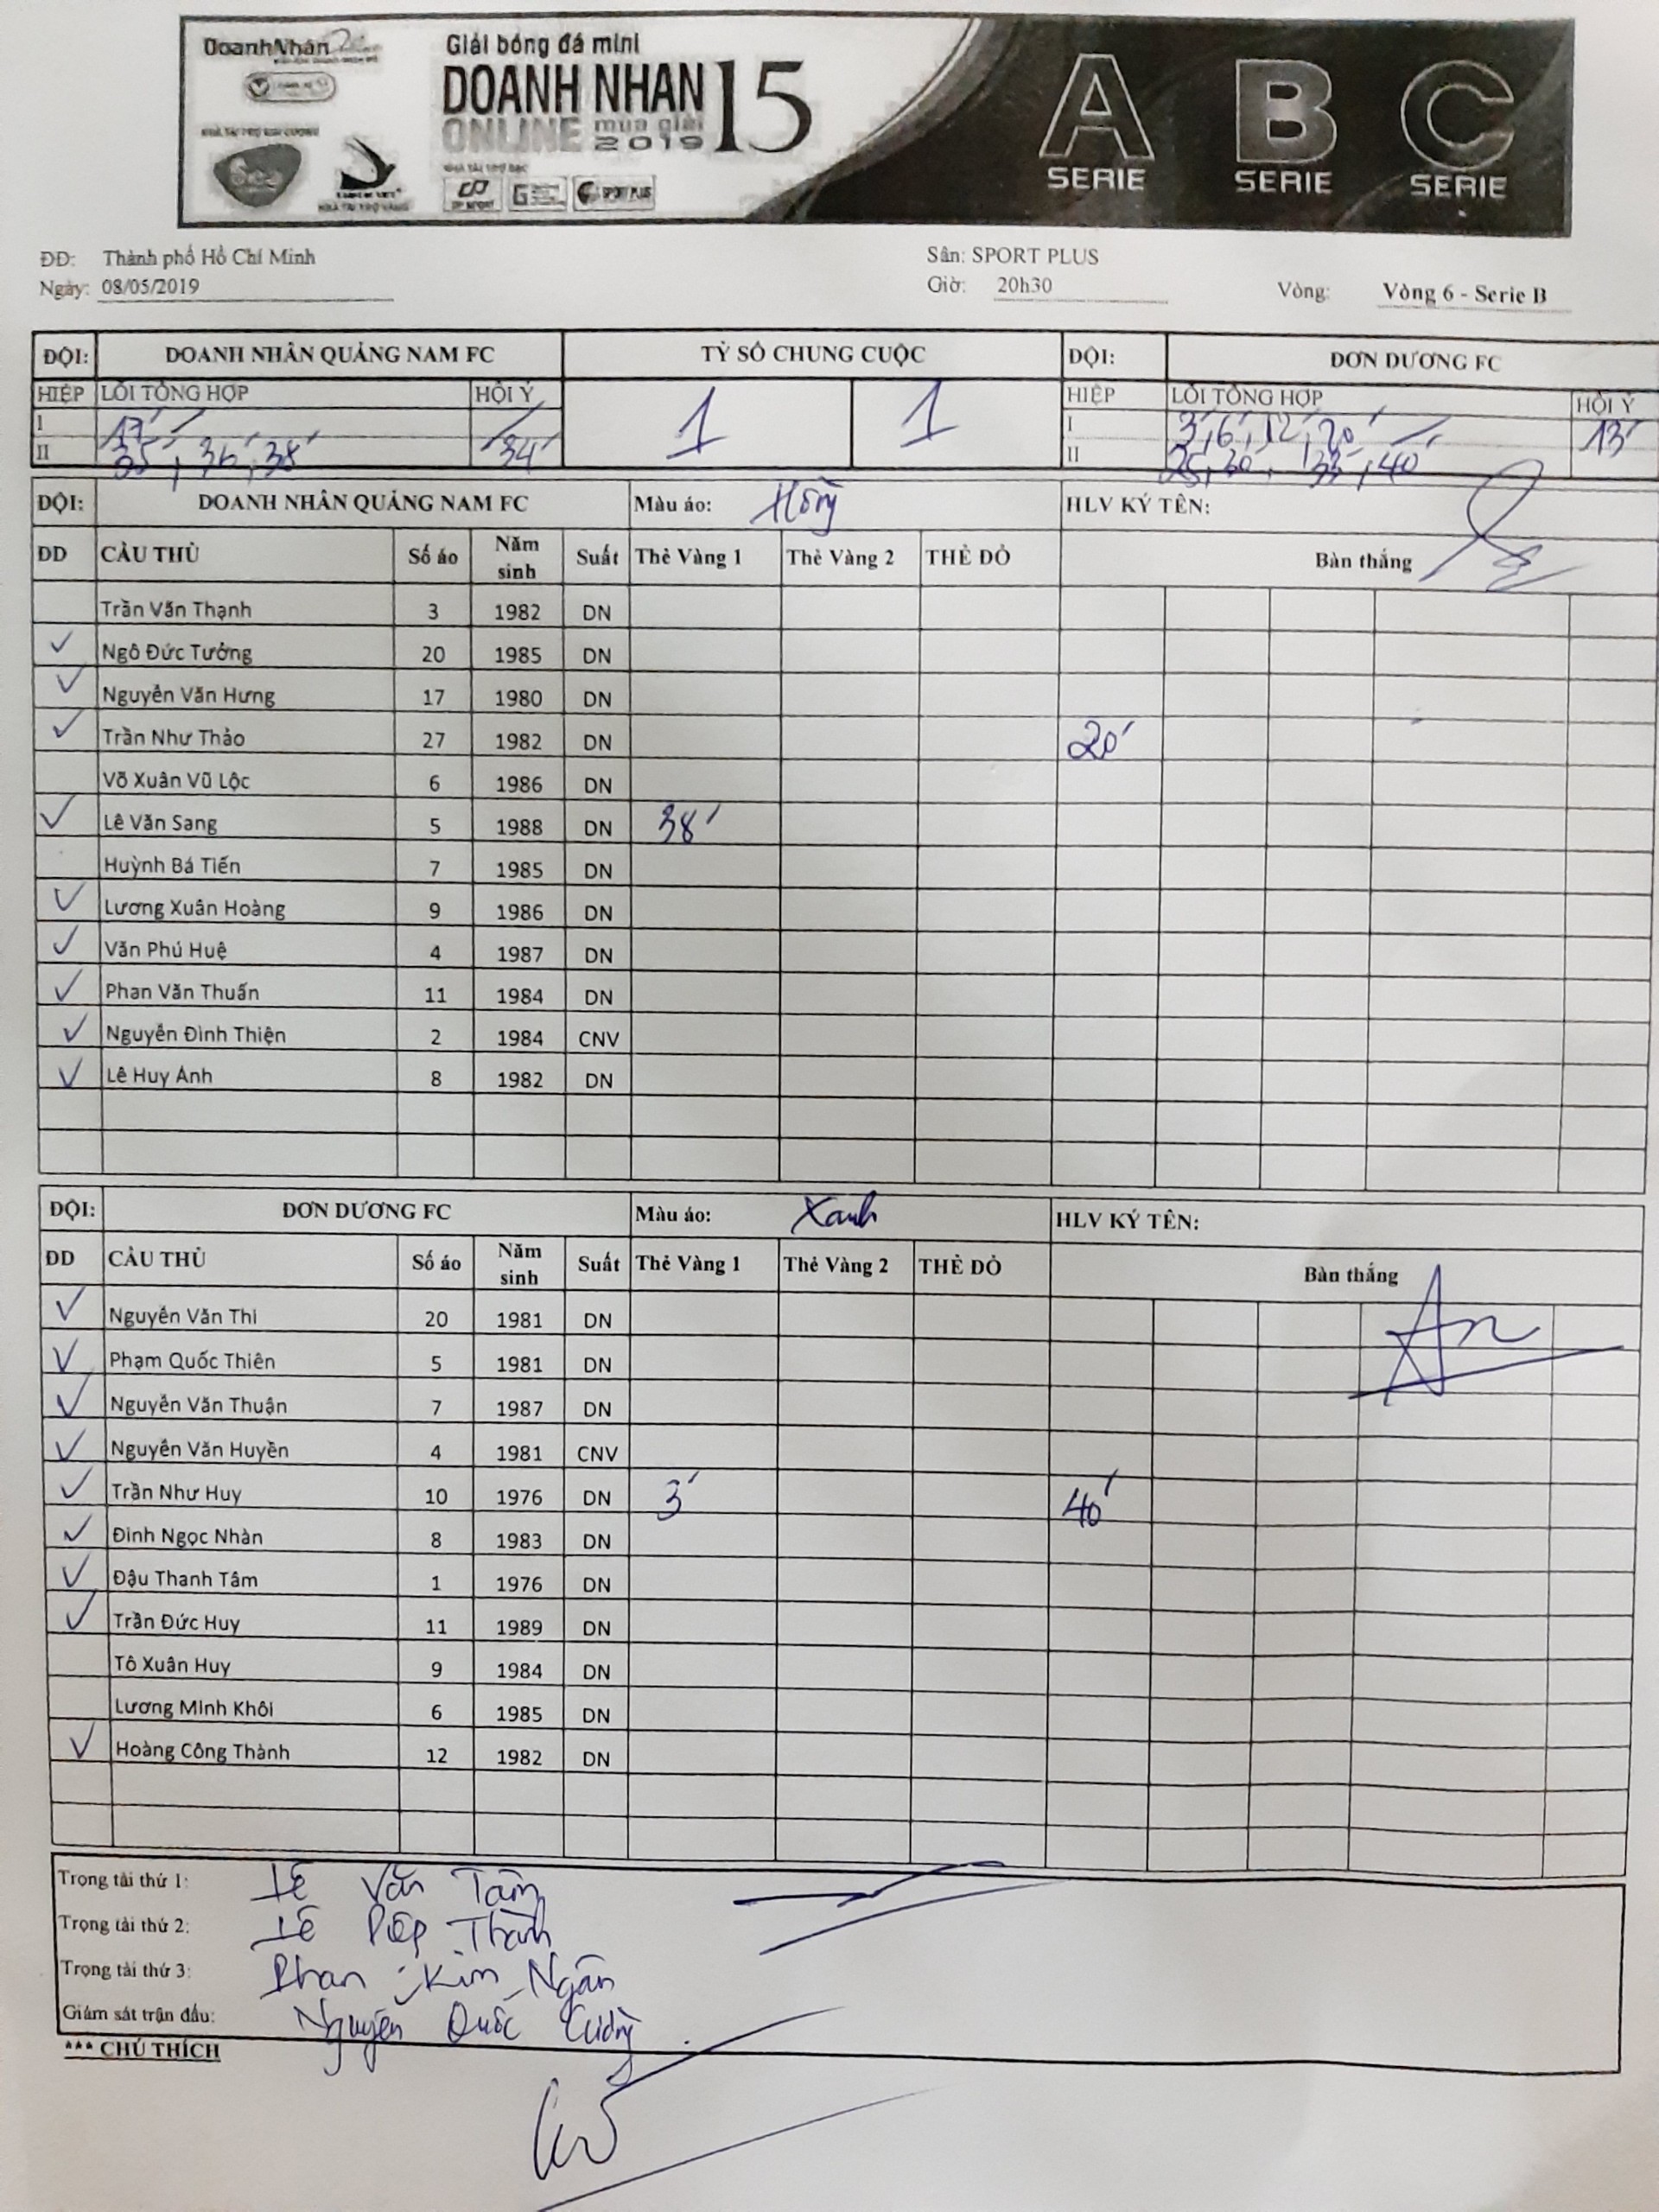 DoanhNhân
Giải bóng đá mini
DOANH NHAN
ONLINE mùa giải 2019 15
NHÀ TÀI TRỢ KIM CƯƠNG
NHÀ TÀI TRỢ VÀNG
NHÀ TÀI TRỢ BẠC
SPORT PLUS
A SERIE B SERIE C SERIE
ĐĐ: Thành phố Hồ Chí Minh Sân: SPORT PLUS
Ngày: 08/05/2019 Giờ: 20h30 Vòng: Vòng 6 - Serie B
ĐỘI: DOANH NHÂN QUẢNG NAM FC TỶ SỐ CHUNG CUỘC ĐỘI: ĐƠN DƯƠNG FC
HIỆP LỖI TỔNG HỢP HỘI Ý 1 1 HIỆP LỖI TỔNG HỢP HỘI Ý
I 17' I 3', 6', 12', 20' 13'
II 35', 36', 38' 34' II 25', 30', 33', 40'
ĐỘI: DOANH NHÂN QUẢNG NAM FC Màu áo: Hồng HLV KÝ TÊN:
ĐD CẦU THỦ Số áo Năm sinh Suất Thẻ Vàng 1 Thẻ Vàng 2 THẺ ĐỎ Bàn thắng
Trần Văn Thạnh 3 1982 DN
Ngô Đức Tưởng 20 1985 DN
Nguyễn Văn Hưng 17 1980 DN
Trần Như Thảo 27 1982 DN 20'
Võ Xuân Vũ Lộc 6 1986 DN
Lê Văn Sang 5 1988 DN 38'
Huỳnh Bá Tiến 7 1985 DN
Lương Xuân Hoàng 9 1986 DN
Văn Phú Huệ 4 1987 DN
Phan Văn Thuấn 11 1984 DN
Nguyễn Đình Thiện 2 1984 CNV
Lê Huy Ánh 8 1982 DN
ĐỘI: ĐƠN DƯƠNG FC Màu áo: Xanh HLV KÝ TÊN:
ĐD CẦU THỦ Số áo Năm sinh Suất Thẻ Vàng 1 Thẻ Vàng 2 THẺ ĐỎ Bàn thắng
Nguyễn Văn Thi 20 1981 DN
Phạm Quốc Thiên 5 1981 DN
Nguyễn Văn Thuận 7 1987 DN
Nguyễn Văn Huyền 4 1981 CNV
Trần Như Huy 10 1976 DN 3' 40'
Đinh Ngọc Nhàn 8 1983 DN
Đậu Thanh Tâm 1 1976 DN
Trần Đức Huy 11 1989 DN
Tô Xuân Huy 9 1984 DN
Lương Minh Khôi 6 1985 DN
Hoàng Công Thành 12 1982 DN
Trọng tài thứ 1: Lê Văn Tâm
Trọng tài thứ 2: Lê Thành
Trọng tài thứ 3: Phan Kim Ngân
Giám sát trận đấu: Nguyễn Quốc Cường
*** CHÚ THÍCH